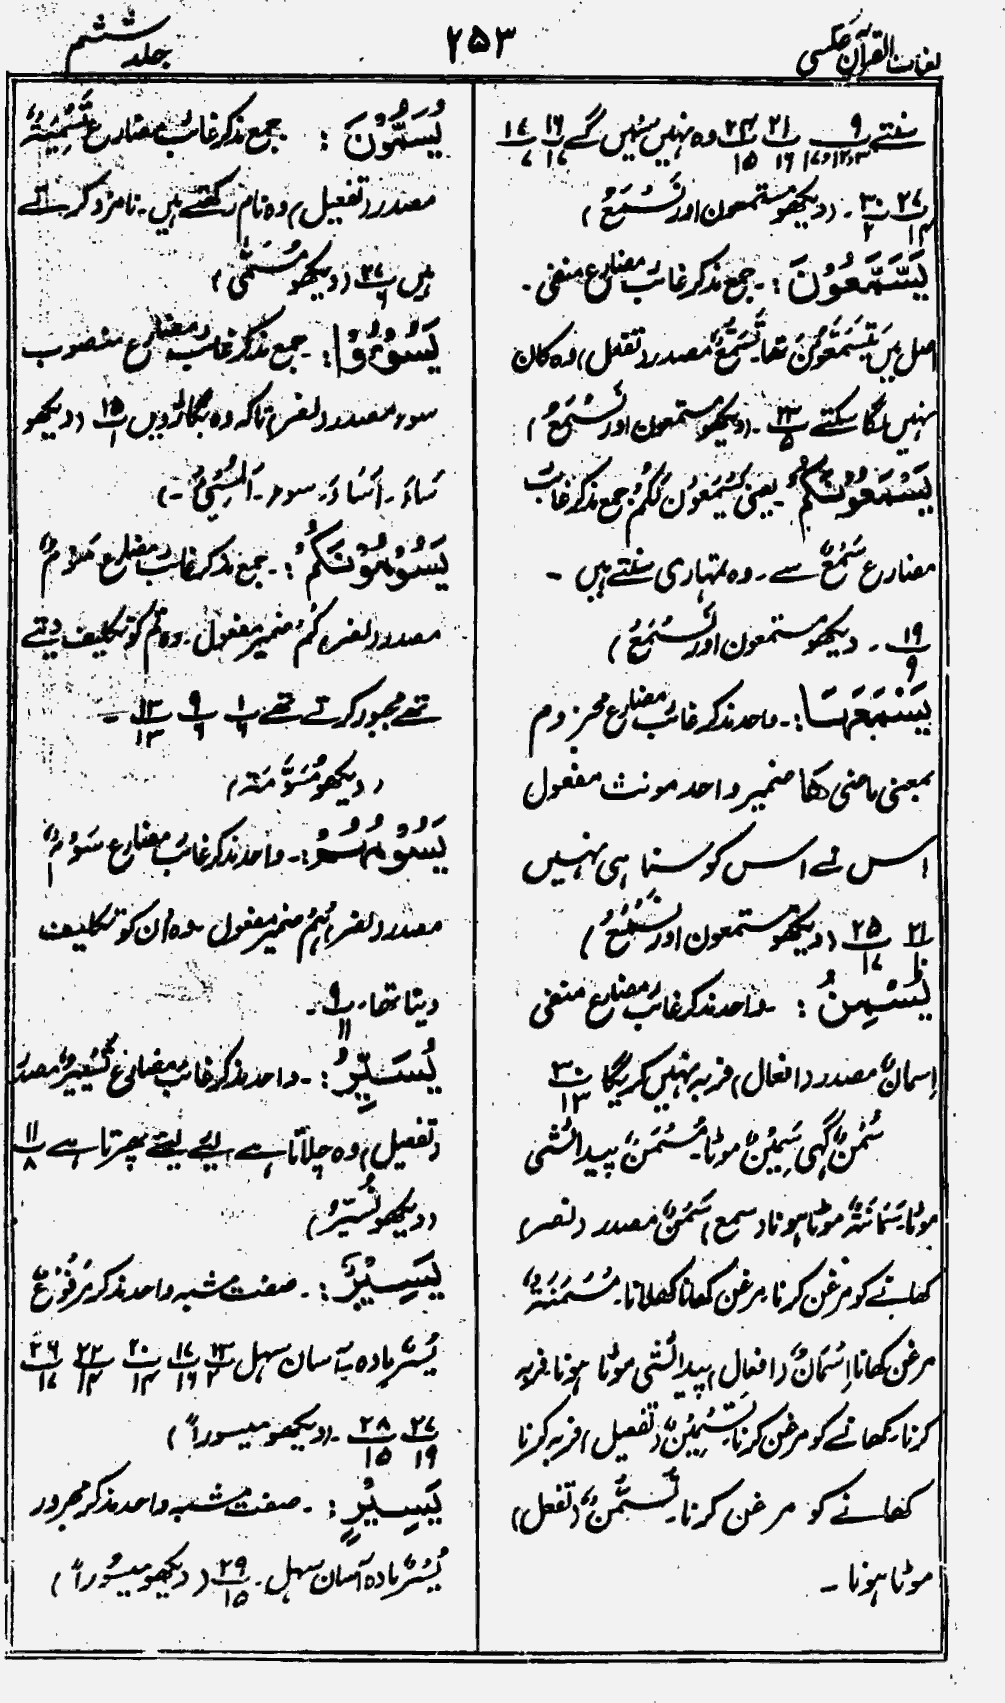 لغات القرآن عکسی
۲۵۳
جلد ششم
سنتے ۹ / ۳و۱۲و۱۷ ۲۱ / ۱۶ ۲۴ / ۱۵ وہ نہیں سنیں گے ۱۶ / ۱۷ ۱۷ / ۷
۲۷ / ۱۴ ۳۰ / ۲ ۔ (دیکھو مستمعون اور تَسْمَعُ)
يَسَّمَّعُوْنَ :۔ جمع مذکر غائب مضارع منفی ۔
اصل میں يَتَسَمَّعُوْنَ تھا تَسَمُّعٌ مصدر (تفعل) وہ کان
نہیں لگا سکتے ۲۳ / ۵ ۔ (دیکھو مستمعون اور تَسْمَعُ)
يَسْمَعُوْنَكُمْ ۔ یعنی يَسْمَعُوْنَ لَكُمْ جمع مذکر غائب
مضارع سَمْعٌ سے ۔ وہ تمہاری سنتے ہیں ۔
۱۹ / ۹ ۔ دیکھو مستمعون اور تَسْمَعُ)
يَسْمَعْهَا :۔ واحد مذکر غائب مضارع مجزوم
بمعنی ماضی ھا ضمیر واحد مونث مفعول
اس نے اس کو سنا ہی نہیں
۲۱ / ۱۰ ۲۵ / ۱۷ (دیکھو مستمعون اور تَسْمَعُ)
يُسْمِنُ :۔ واحد مذکر غائب مضارع منفی
اِسْمَانٌ مصدر (افعال) فربہ نہیں کریگا ۳۰ / ۱۳
سَمْنٌ گھی سَمِيْنٌ موٹا۔ مُسْمَنٌ پیدائشی
موٹا۔ سَمَانَةٌ موٹا ہونا (سمع) سَمْنٌ مصدر (نصر)
کھانے کو مرغن کرنا۔ مرغن کھانا کھلانا۔ مُسْمَنَةٌ
مرغن کھانا اِسْمَانٌ (افعال) پیدائشی موٹا ہونا فربہ
کرنا۔ کھانے کو مرغن کرنا تَسْمِيْنٌ (تفعیل) فربہ کرنا
کھانے کو مرغن کرنا۔ تَسَمُّنٌ (تفعل)
موٹا ہونا ۔
يُسَمُّوْنَ : جمع مذکر غائب مضارع تَسْمِيَةٌ
مصدر (تفعیل) وہ نام رکھتے ہیں ۔ نامزد کرتے
ہیں ۲۷ / ۶ (دیکھو مُسَمًّى)
يَسُوْءٗا :۔ جمع مذکر غائب مضارع منصوب
سوء مصدر (نصر) تاکہ وہ بگاڑ دیں ۱۵ / ۱ (دیکھو
سَاءَ ۔ اَسَاءَ ۔ سوء ۔ اَلْمُسِيْءُ ۔)
يَسُوْمُوْنَكُمْ :۔ جمع مذکر غائب مضارع سَوْمٌ
مصدر (نصر) كُمْ ضمیر مفعول ۔ وہ تم کو تکلیف دیتے
تھے مجبور کرتے تھے ۱ / ۶ ۹ / ۶ ۱۳ / ۱۳ ۔
(دیکھو مُسَوَّمَة)
يَسُوْمُهُمْ :۔ واحد مذکر غائب مضارع سَوْمٌ
مصدر (نصر) هُمْ ضمیر مفعول ۔ وہ اُن کو تکلیف
دیتا تھا۔ ۹ / ۱۱ ۔
يُسَيِّرُ :۔ واحد مذکر غائب مضارع تَسْيِيْرٌ مصدر
(تفعیل) وہ چلاتا ہے لئے لئے پھرتا ہے ۱۱ / ۸
(دیکھو نُسَيِّرُ)
يَسِيْرٌ :۔ صفت مشبہ واحد مذکر مرفوع
يُسْرٌ مادہ ۔ آسان سہل ۱۳ / ۲ ۱۷ / ۱۶ ۲۰ / ۱۴ ۲۲ / ۱۴ ۲۶ / ۱۷
۲۷ / ۱۹ ۲۸ / ۱۵ ۔ (دیکھو ميسوراً)
يَسِيْرٍ :۔ صفت مشبہ واحد مذکر مجرور
يُسْرٌ مادہ آسان سہل ۔ ۲۹ / ۱۵ (دیکھو میسوراً)